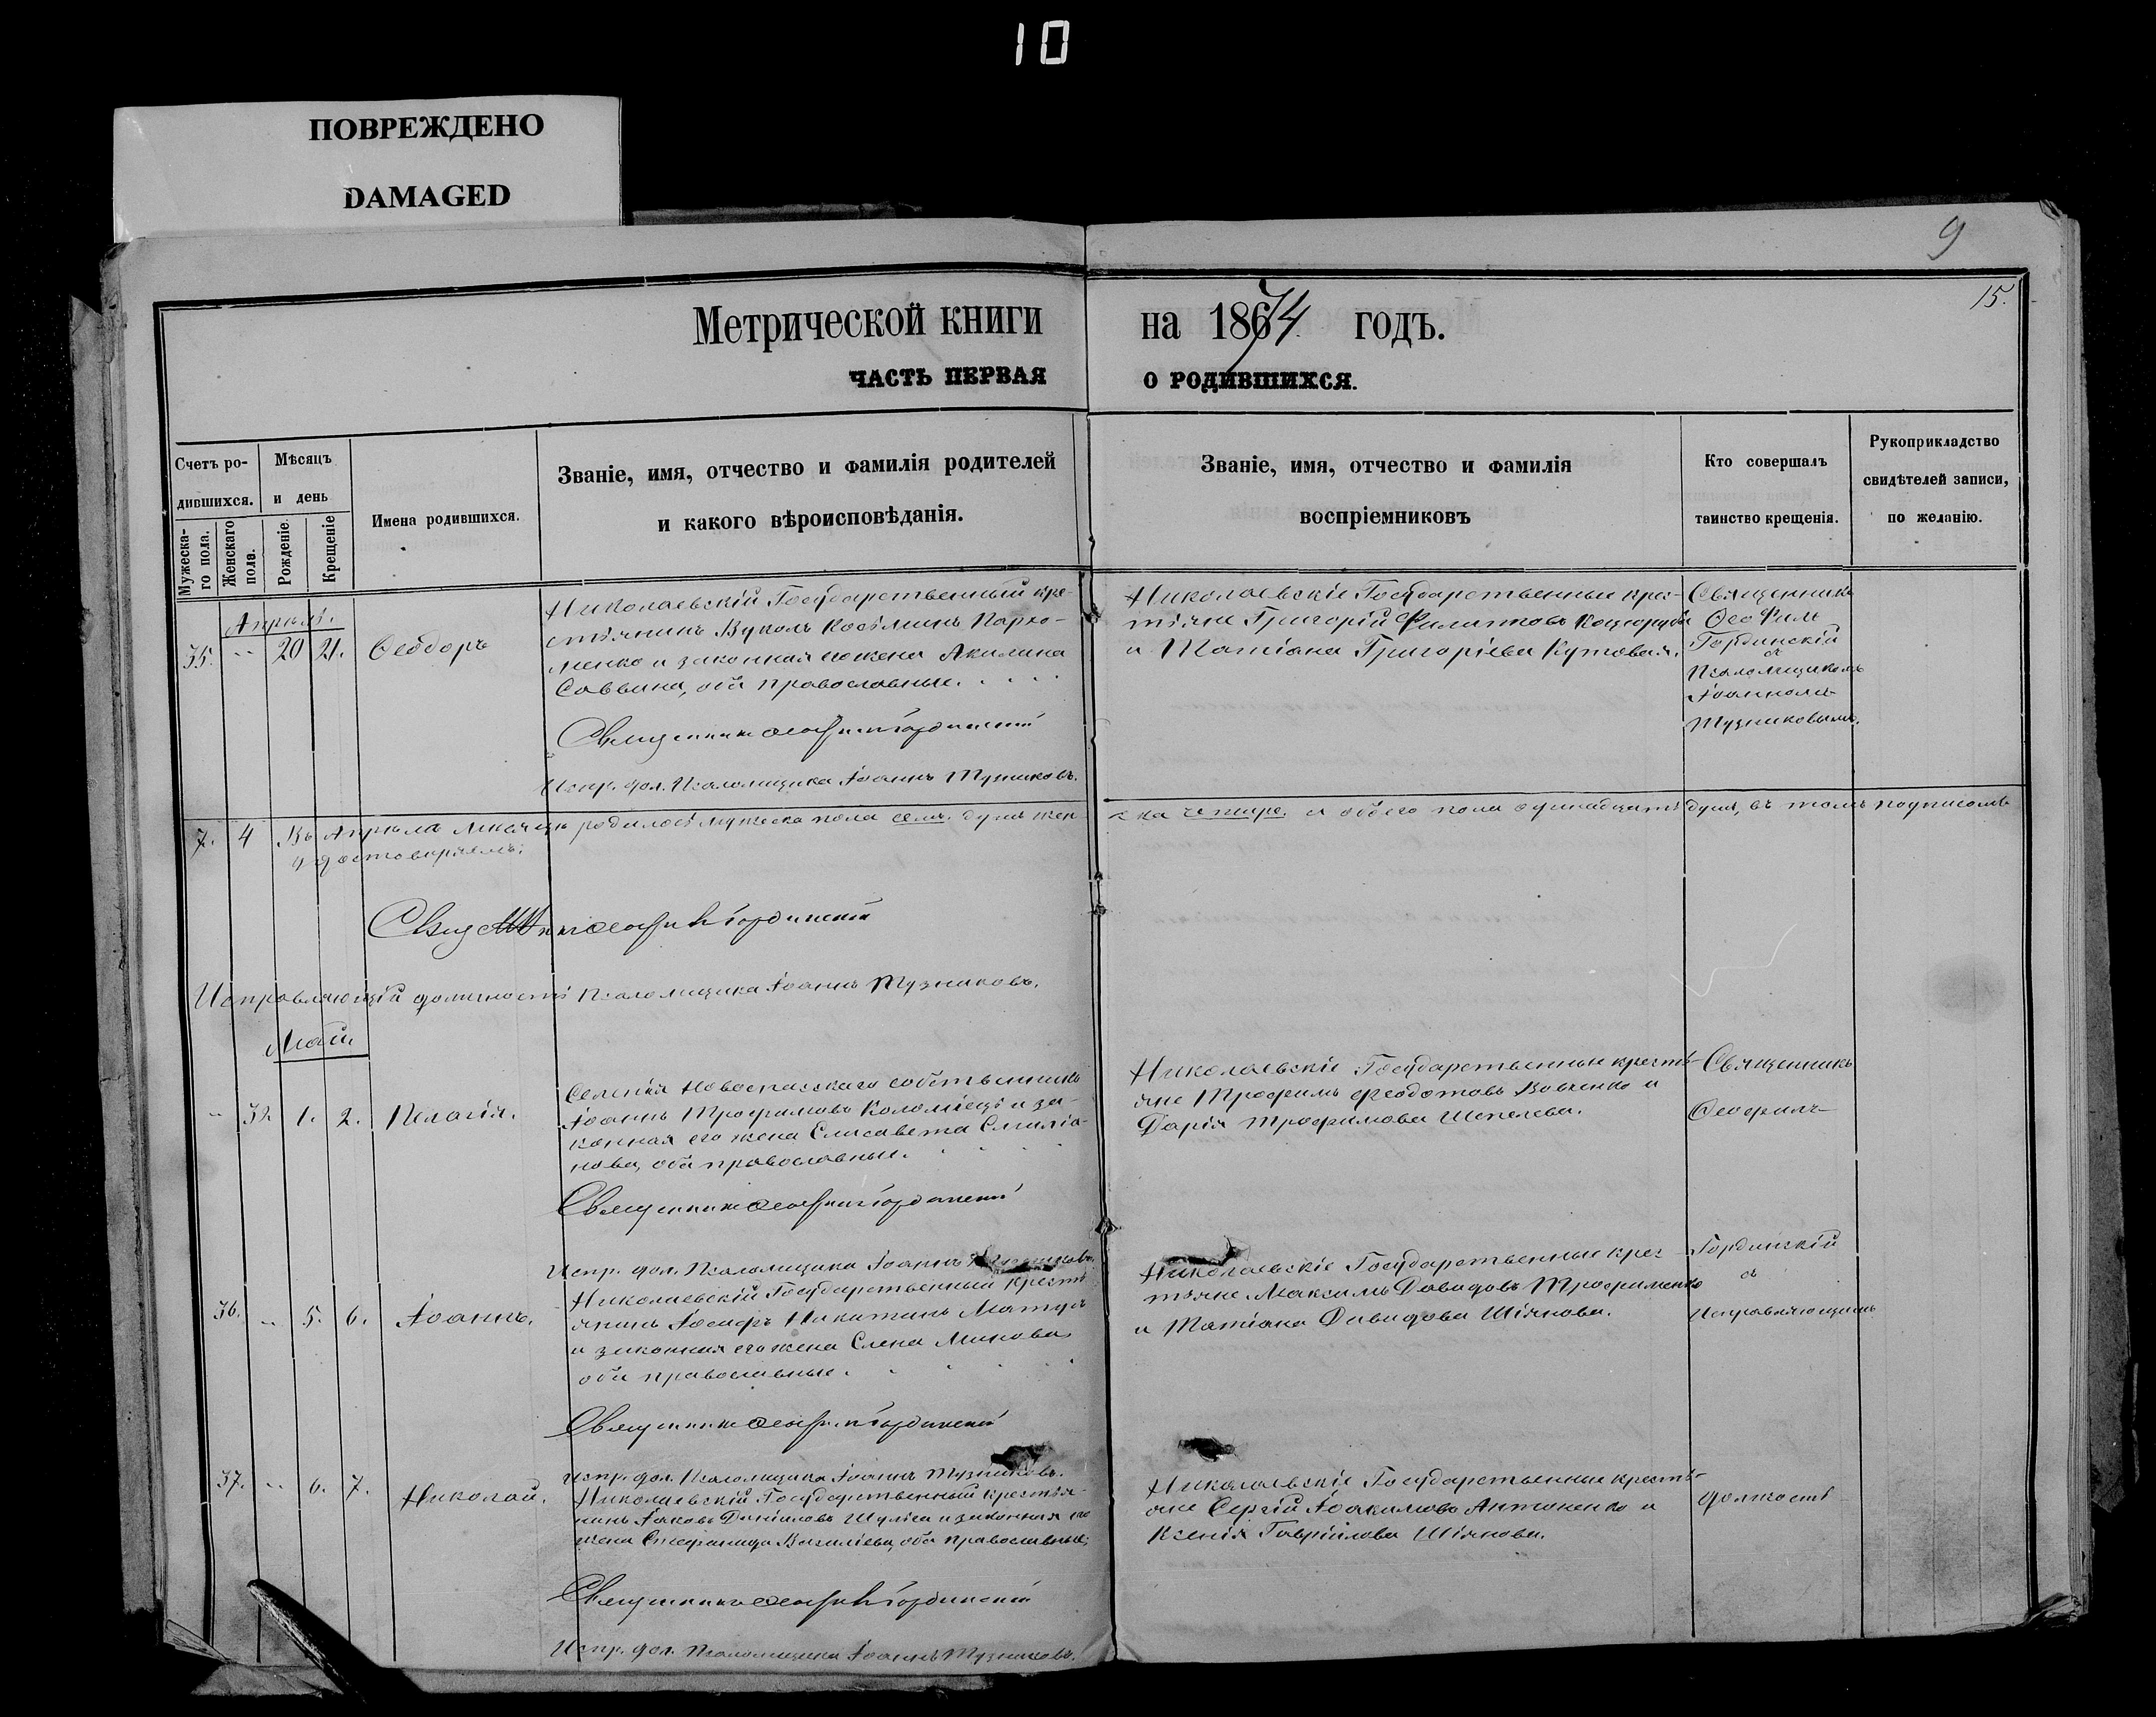 10
ПОВРЕЖДЕНО
DAMAGED
9
15.
Метрической книги на 1874 годъ.
ЧАСТЬ ПЕРВАЯ О РОДИВШИХСЯ.
Счетъ ро-
дившихся.
Мужеска-
го пола.
Женскаго
пола.
Мѣсяцъ
и день
Рожденіе.
Крещеніе
Имена родившихся.
Званіе, имя, отчество и фамилія родителей
и какого вѣроисповѣданія.
Званіе, имя, отчество и фамилія
воспріемниковъ
Кто совершалъ
таинство крещенія.
Рукоприкладство
свидѣтелей записи,
по желанію.
Апрѣль.
35. " 20 21. Ѳеодоръ
Николаевскій Государственный кре-
стьянинъ Вуколъ Косьминъ Пархо-
менко и законная его жена Акилина
Саввина, оба православные.
Священникъ Ѳеофилъ Гординскій
Испр. дол. Псаломщика Іоаннъ Тузниковъ.
Николаевскіе Государственные крес-
тьяне Григорій Филиповъ
и Татіана Григоріева Кутовая.
Священникъ
Ѳеофилъ
Гординскій
съ
Псаломщикомъ
Іоанномъ
Тузниковымъ.
7. 4 Въ Апрѣлѣ мѣсяцѣ родилось мужеска пола семь душъ жен-
ска четыре. и обоего пола одинадцать душъ, въ томъ подписомъ
удостовѣряемъ:
Священникъ Ѳеофилъ Гординскій
Исправляющій должность Псаломщика Іоаннъ Тузниковъ.
Май.
" 1. 2. Пелагія.
Селенія Новоспасскаго собственникъ
Іоаннъ Трофимовъ Коломіецъ и за-
конная его жена Елисавета Емиліа-
нова, оба православные.
Священникъ Ѳеофилъ Гординскій
Испр. дол. Псаломщика Іоаннъ Тузниковъ.
Николаевскіе Государственные кресть-
яне Трофимъ Феодотовъ Вовченко и
Дарія Трофимова Шепелева.
Священникъ
Ѳеофилъ
36. " 5. 6. Іоаннъ.
Николаевскій Государственный кресть-
янинъ Іосифъ Никитинъ
и законная его жена Елена Минова,
оба православные.
Священникъ Ѳеофилъ Гординскій
Испр. дол. Псаломщика Іоаннъ Тузниковъ.
Николаевскіе Государственные крес-
тьяне Максимъ Давидовъ Трофименко
и Татіана Давидова Шіянова.
Гординскій
съ
Исправляющимъ
37. " 6. 7. Николай.
Николаевскій Государственный крестья-
нинъ Іаковъ Даніиловъ Шулга и законная его
жена Стефанида Василіева, оба православные,
Священникъ Ѳеофилъ Гординскій
Испр. дол. Псаломщика Іоаннъ Тузниковъ.
Николаевскіе Государственные кресть-
яне Сергій Іоакимовъ Антоненко и
Ксенія Гавріилова Шіянова.
должность